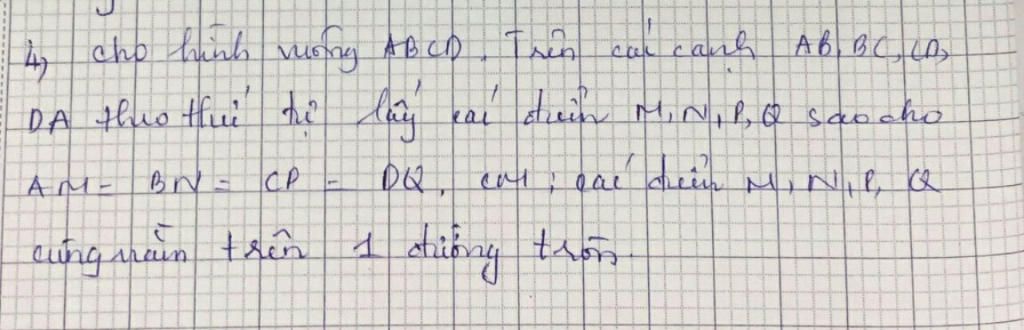 4, cho hình vuông ABCD. Trên các cạnh AB, BC, CD,
DA theo thứ tự lấy các điểm M, N, P, Q sao cho
AM = BN = CP = DQ. cm: các điểm M, N, P, Q
cùng nằm trên 1 đường tròn.